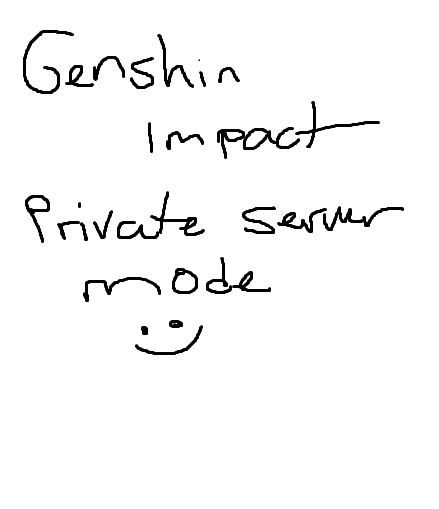 Genshin
Impact
Private server
mode